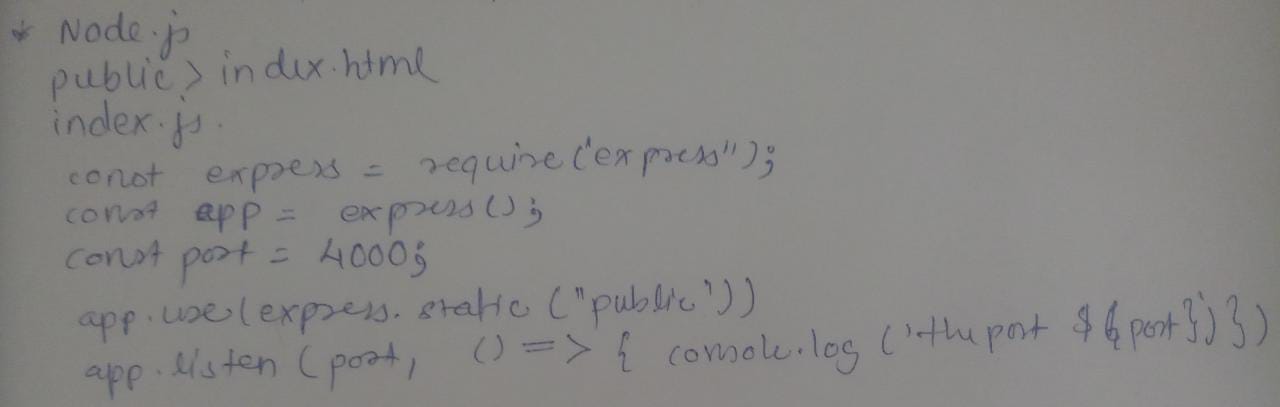 * Node.js
public > index.html
index.js.
const express = require("express");
const app = express();
const port = 4000;
app.use(express.static("public"))
app.listen(port, () => { console.log('the port ${port}')})